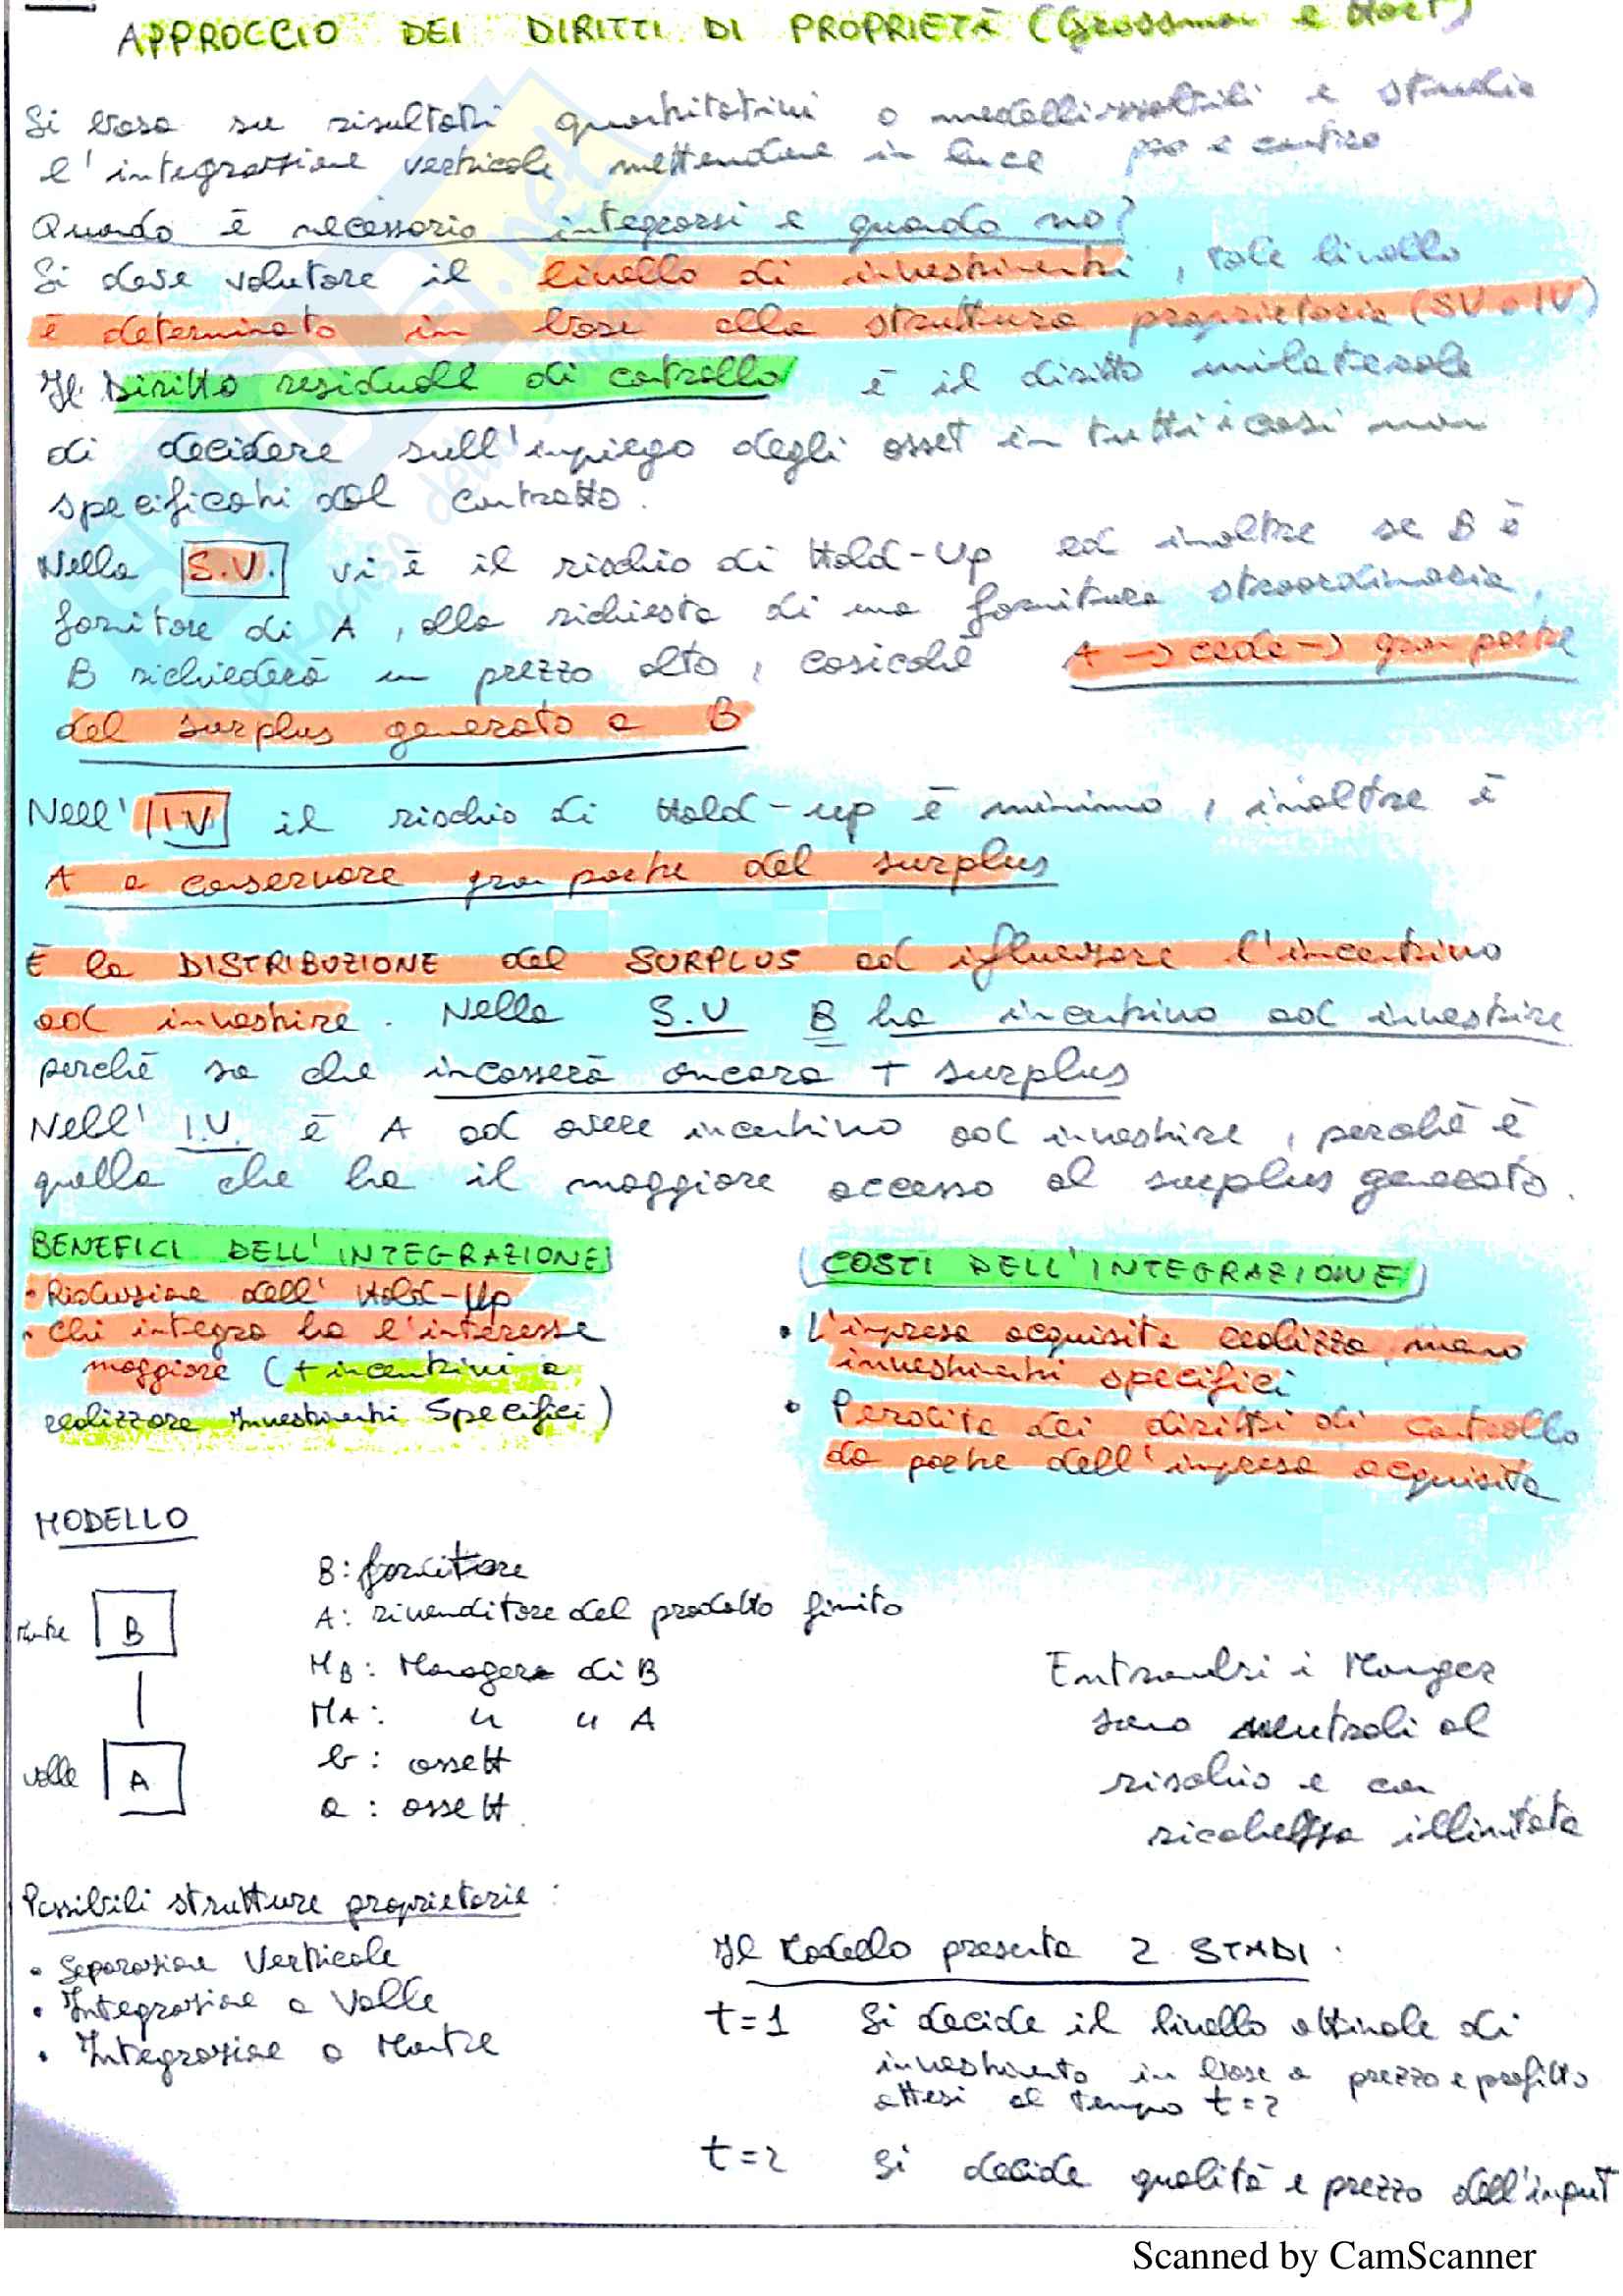 APPROCCIO DEI DIRITTI DI PROPRIETÀ (Grossman e Hart)
Si basa su risultati quantitativi o modellizzabili e studia
l'integrazione verticale mettendone in luce pro e contro
Quando è necessario integrarsi e quando no?
Si deve valutare il livello di investimenti, tale livello
è determinato in base alla struttura proprietaria (SV o IV)
Il Diritto residuale di controllo è il diritto unilaterale
di decidere sull'impiego degli asset in tutti i casi non
specificati dal contratto.
Nella S.V. vi è il rischio di Hold-Up ed inoltre se B è
fornitore di A, alla richiesta di una fornitura straordinaria,
B richiederà un prezzo alto, cosicchè A → cede → gran parte
del surplus generato a B
Nell' IV il rischio di Hold-up è minimo, inoltre è
A a conservare gran parte del surplus
È la DISTRIBUZIONE del SURPLUS ad influenzare l'incentivo
ad investire. Nella S.V B ha incentivo ad investire
perchè sa che incasserà ancora + surplus
Nell' I.V. è A ad avere incentivo ad investire, perchè è
quella che ha il maggiore accesso al surplus generato.
BENEFICI DELL'INTEGRAZIONE
• Riduzione dell' Hold-Up
• Chi integra ha l'interesse
maggiore (+ incentivi a
realizzare Investimenti Specifici)
COSTI DELL'INTEGRAZIONE
• L'impresa acquisita realizza meno
investimenti specifici
• Perdita dei diritti di controllo
da parte dell'impresa acquisita
MODELLO
Monte B
Valle A
B: fornitore
A: rivenditore del prodotto finito
MB: Manager di B
MA: " " A
b: assett
a: assett.
Entrambi i Manger
sono neutrali al
rischio e con
ricchezza illimitata
Possibili strutture proprietarie:
• Separazione Verticale
• Integrazione a Valle
• Integrazione a Monte
Il Modello presenta 2 STADI:
t=1 Si decide il livello ottimale di
investimento in base a prezzo e profitto
attesi al tempo t=2
t=2 Si decide qualità e prezzo dell'input
Scanned by CamScanner